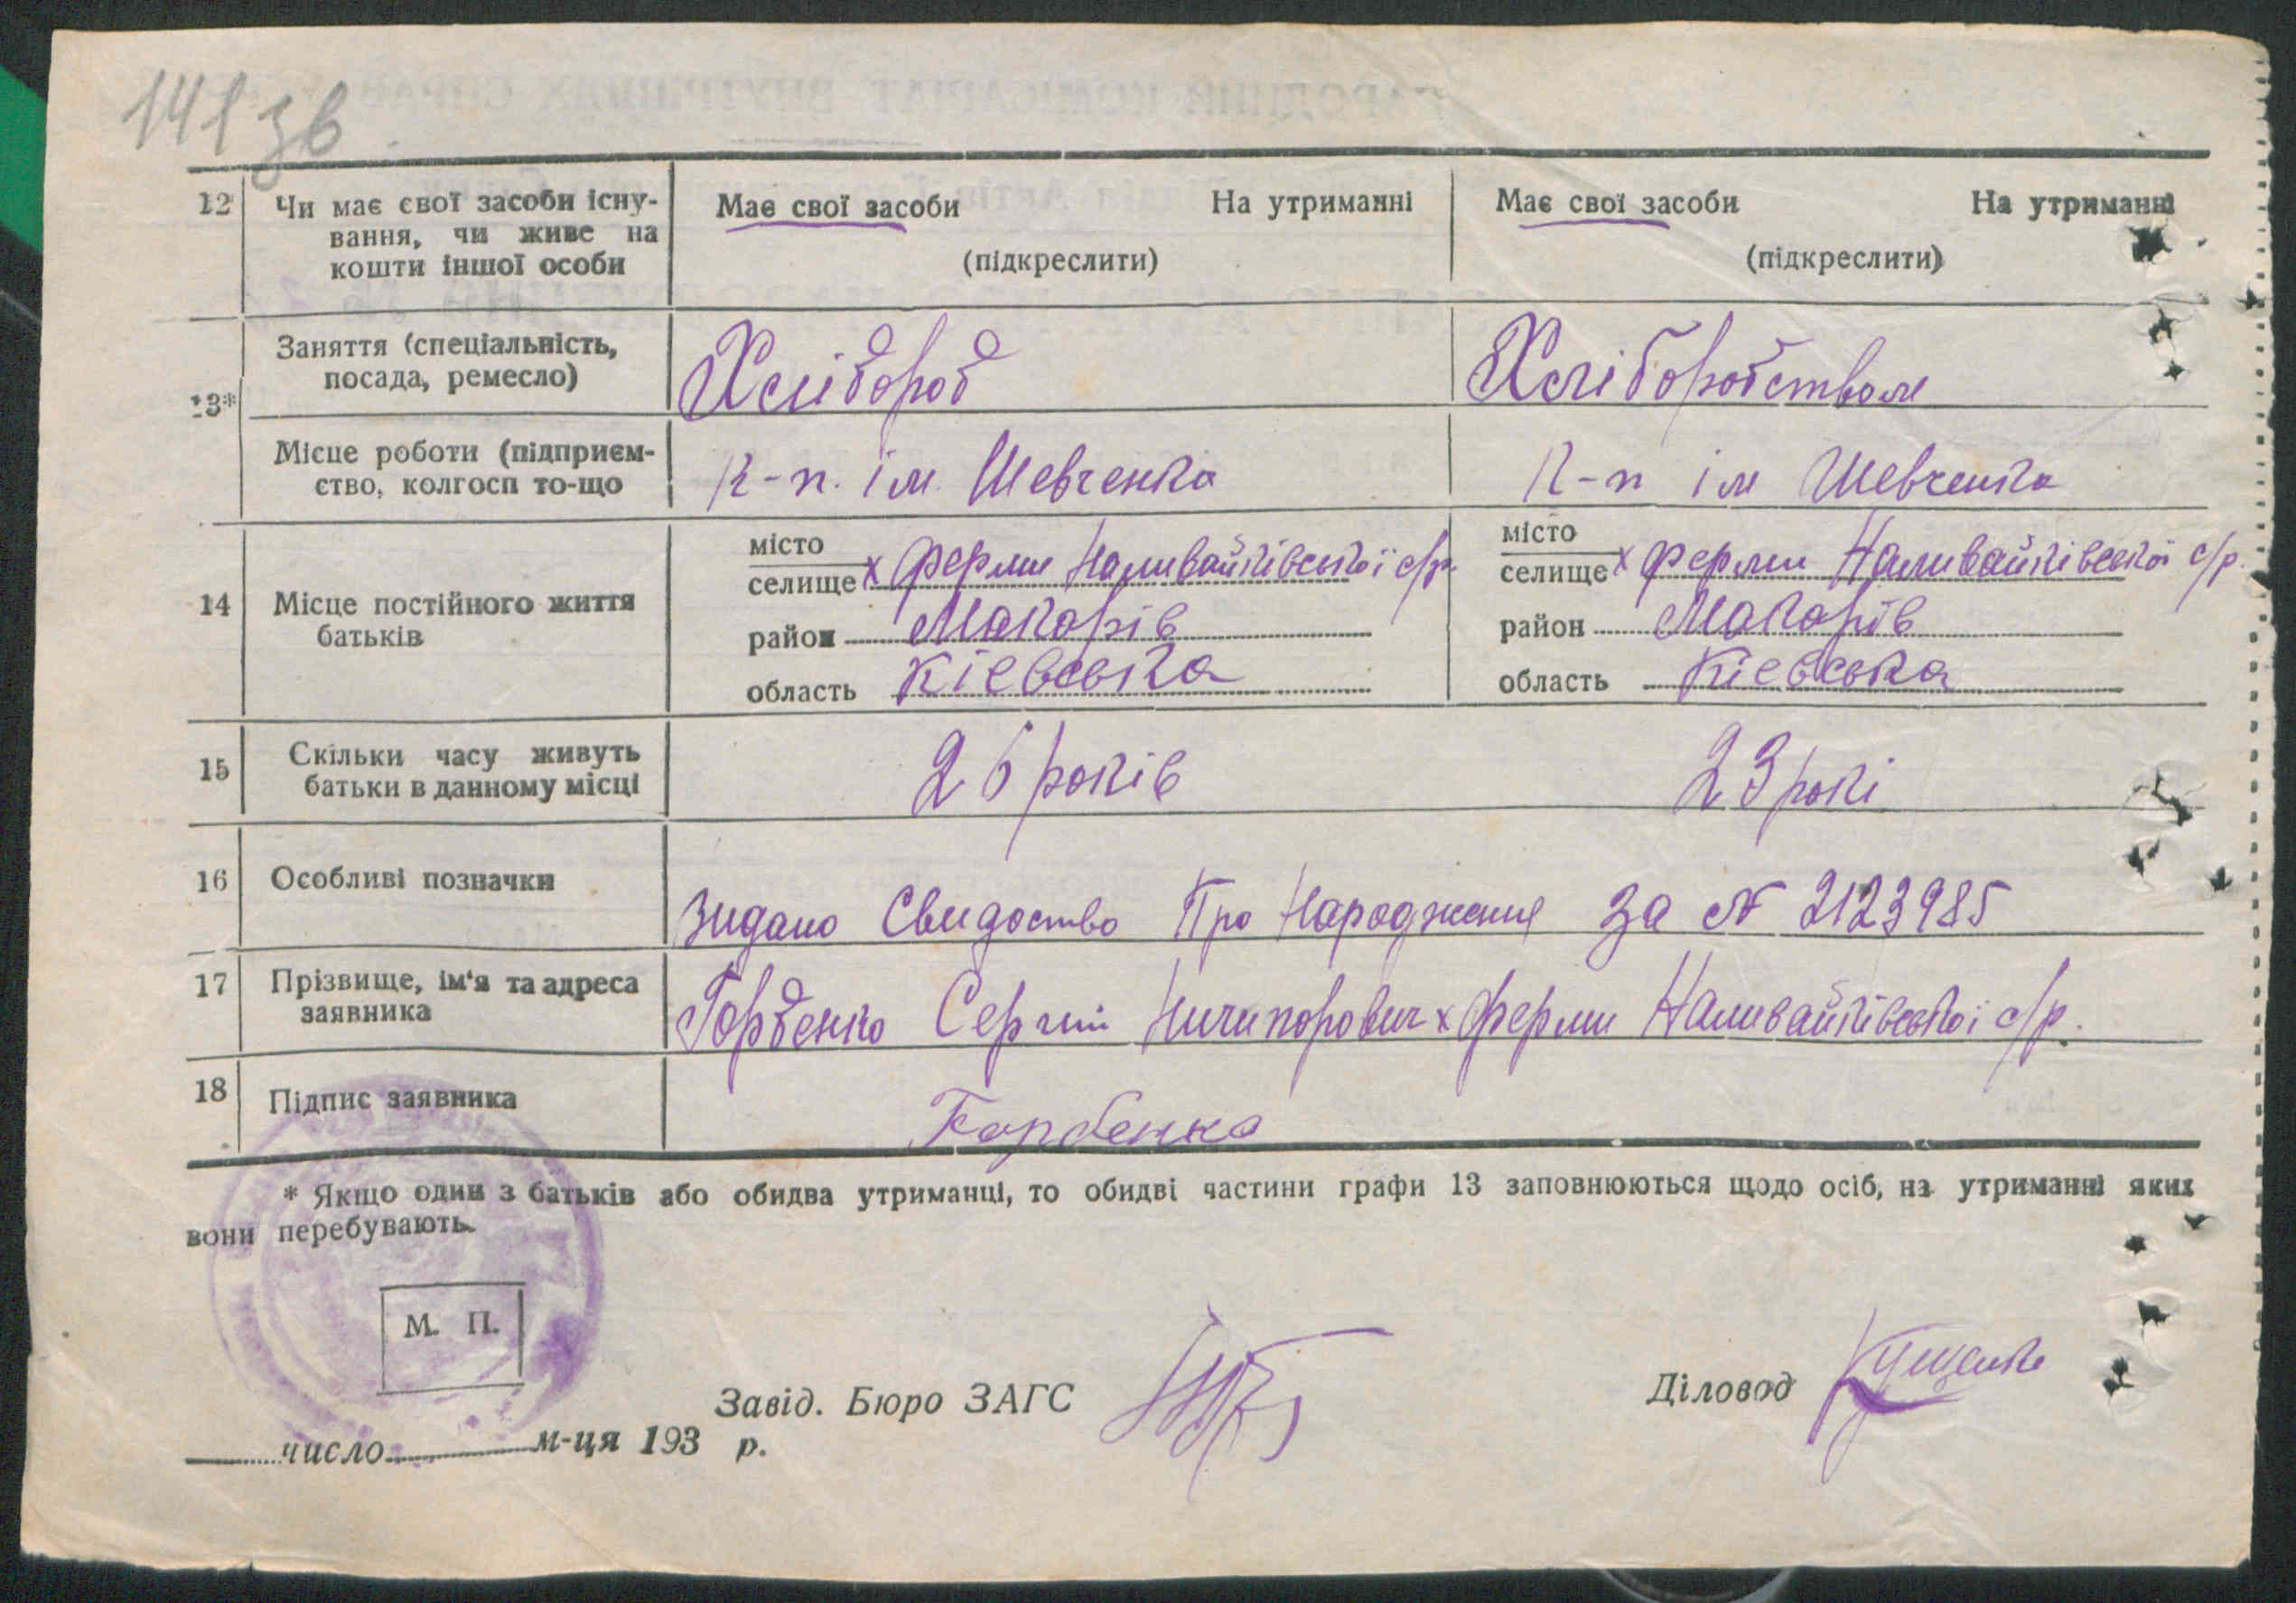 141зв
12 Чи має свої засоби існу- Має свої засоби На утриманні Має свої засоби На утриманні
вання, чи живе на
кошти іншої особи (підкреслити) (підкреслити)
13* Заняття (спеціальність, Хлібороб Хліборобством
посада, ремесло)
Місце роботи (підприєм- К-п. ім. Шевченка К-п ім Шевченка
ство, колгосп то-що
місто місто
селище х Ферми Наливайківської с/р. селище х Ферми Наливайківської с/р.
14 Місце постійного життя
батьків район Макарів район Макарів
область Кієвська область Кієвська
15 Скільки часу живуть 26 років 23 рокі
батьки в данному місці
16 Особливі позначки
Видано Свидоство Про Народження За № 2123985
17 Прізвище, ім'я та адреса
заявника Горбенко Сергій Ничипорович х Ферми Наливайківської с/р.
18 Підпис заявника Горбенко
* Якщо один з батьків або обидва утриманці, то обидві частини графи 13 заповнюються щодо осіб, на утриманні яких
вони перебувають.
М. П.
Завід. Бюро ЗАГС Діловод
число м-ця 193 р.